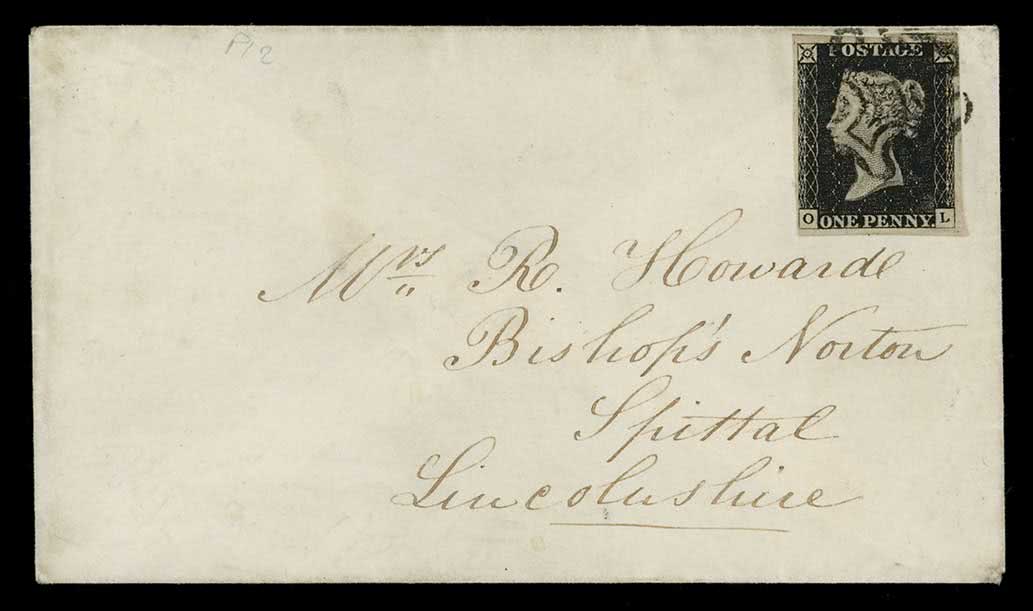 P/2
POSTAGE
O ONE PENNY. L
Mrs R. Howarde
Bishop's Norton
Spittal
Lincolnshire